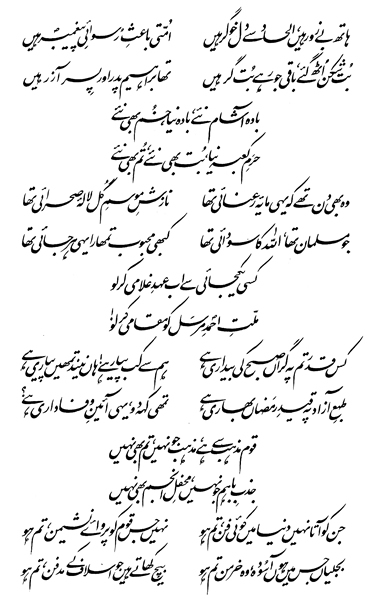 ہاتھ بے زور ہیں، الحاد سے دل خوگر ہیں امّتی باعثِ رسوائیِ پیغمبر ہیں
بُت شکن اٹھ گئے، باقی جو رہے بُت گر ہیں تھا براہیم پدر اور پسر آزر ہیں
بادہ آشام نئے، بادہ نیا، خم بھی نئے
حرمِ کعبہ نیا، بُت بھی نئے، تم بھی نئے
وہ بھی دن تھے کہ یہی مایۂ رعنائی تھا نازشِ موسمِ گل لالۂ صحرائی تھا
جو مسلمان تھا، اللہ کا سودائی تھا کبھی محبوب تمھارا یہی ہرجائی تھا
کسی یکجائی سے اب عہدِ غلامی کر لو
ملّتِ احمدِ مرسل کو مقامی کر لو!
کس قدر تم پہ گراں صبح کی بیداری ہے ہم سے کب پیار ہے! ہاں نیند تمھیں پیاری ہے
طبعِ آزاد پہ قیدِ رمضاں بھاری ہے تمھی کہہ دو، یہی آئینِ وفاداری ہے؟
قوم مذہب سے ہے، مذہب جو نہیں، تم بھی نہیں
جذبِ باہم جو نہیں، محفلِ انجم بھی نہیں
جن کو آتا نہیں دنیا میں کوئی فن، تم ہو نہیں جس قوم کو پروائے نشیمن، تم ہو
بجلیاں جس میں ہوں آسودہ، وہ خرمن تم ہو بیچ کھاتے ہیں جو اسلاف کے مدفن، تم ہو